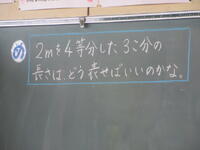 め
2mを4等分した3こ分の
長さは、どう表せばいいのかな。